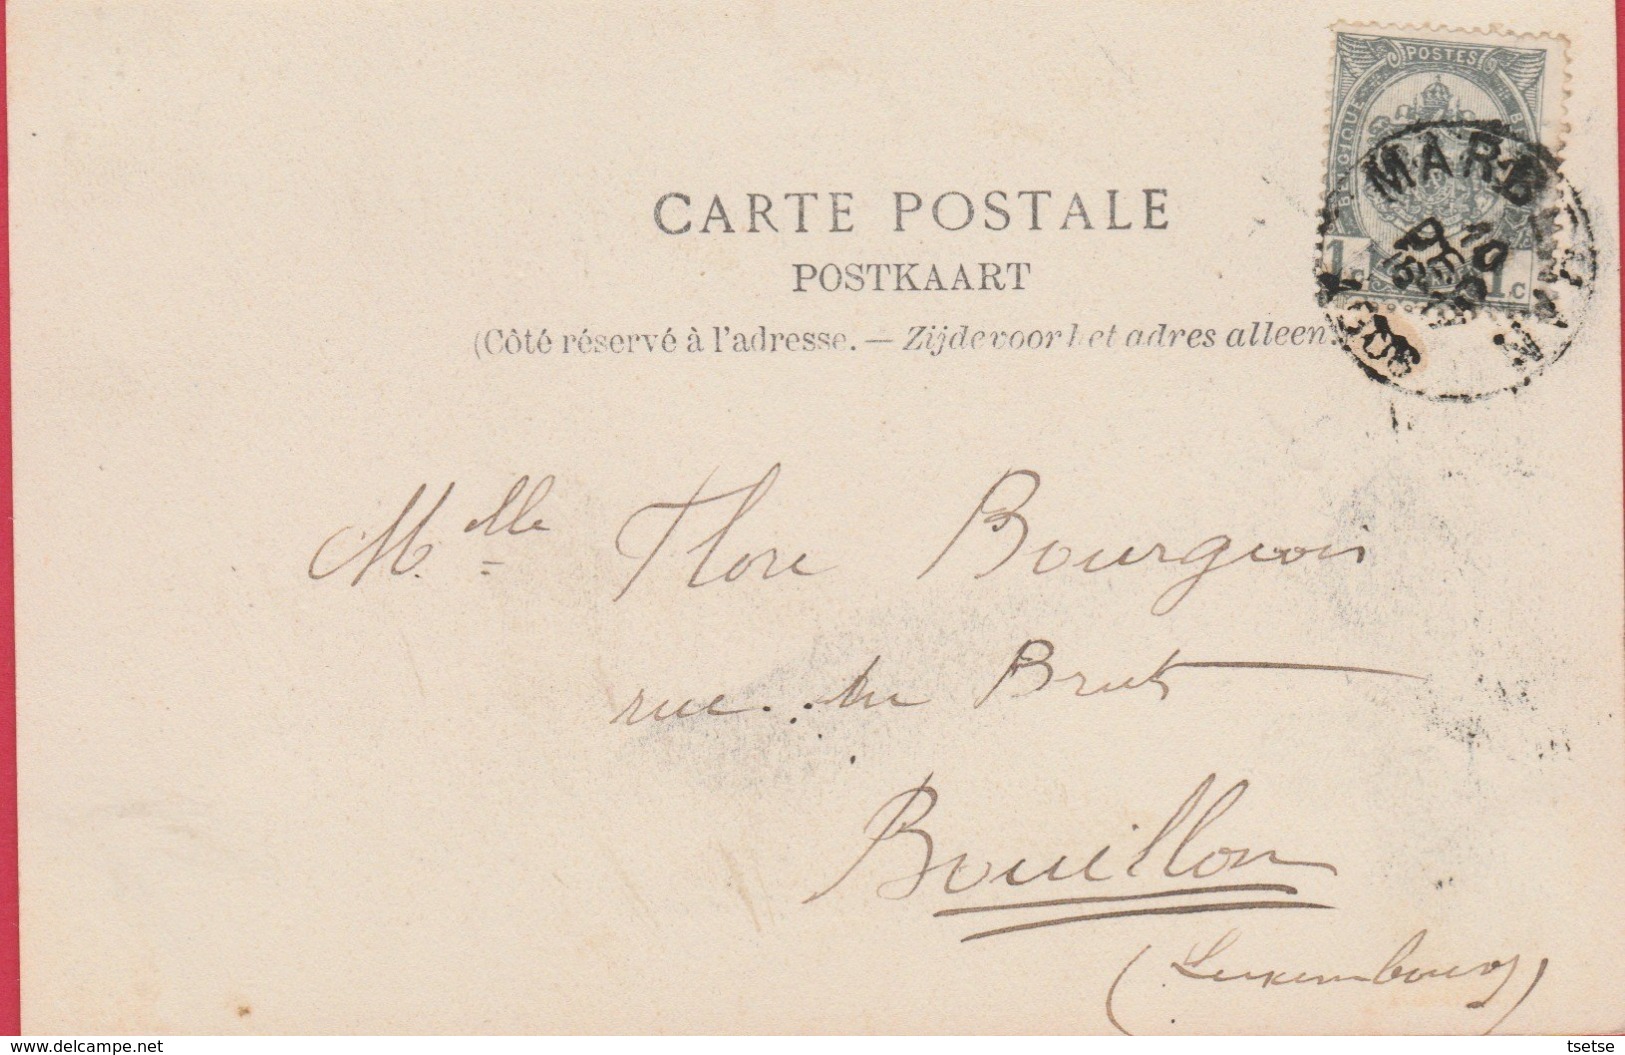 POSTES
BELGIQUE
1c 1c
MARB
10
DEC
CARTE POSTALE
POSTKAART
(Côté réservé à l'adresse. — Zijde voor het adres alleen.
Mlle Flore Bourgeois
rue du Brut
Bouillon
(Luxembourg)
www.delcampe.net
tsetse